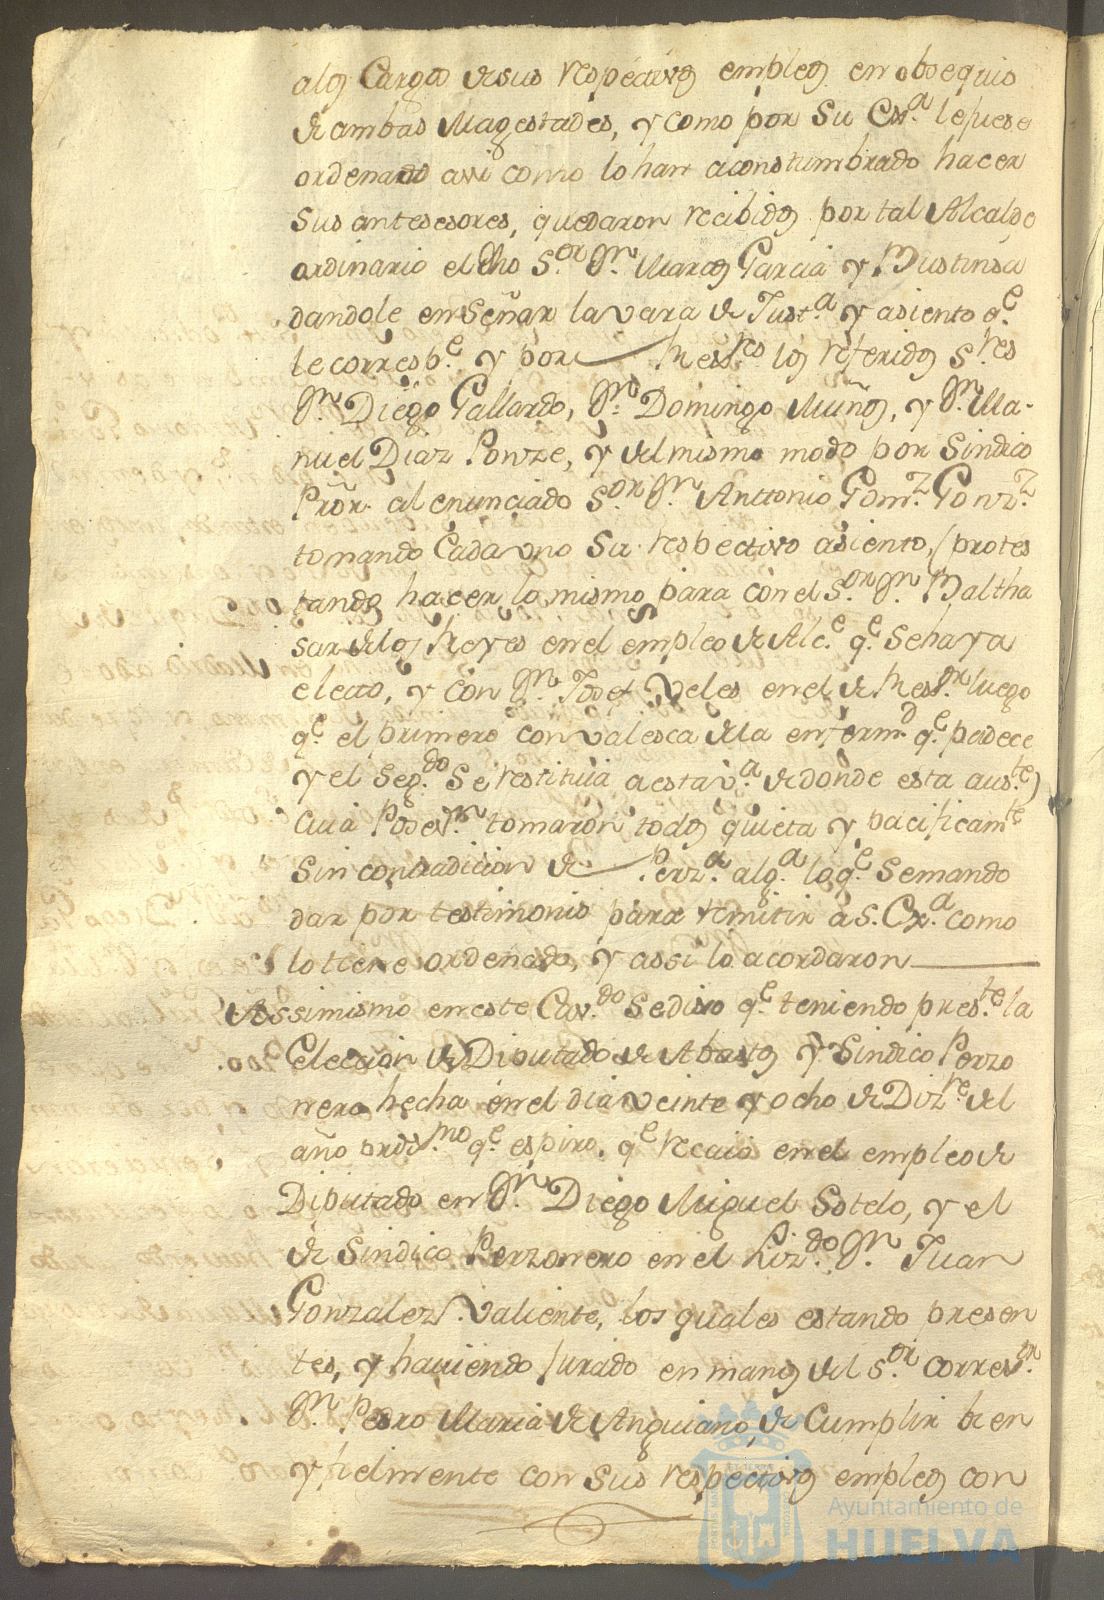 alos Cargos de sus respectivos empleos en obsequio
de ambas Magestades, y como por Su Exa. le fuese
ordenando assi como lo han acostumbrado hacer
sus antesesores, quedaron recibidos por tal Alcalde
ordinario el dho Sor. Dn. Marcos Garcia y
dandole en Señar la vara de Justa. y asiento qe.
le corresbe. y por los referidos Sres
Dn. Diego Gallardo, Dn. Domingo Muños, y Dn. Ma-
nuel Diaz Ponze, y del mismo modo por Sindico
Prõr. al enunciado Sor. Dn. Anttonio Gomz. Gonzz.
tomando Cada uno Su respectivo asiento, protes
tando hacer lo mismo para con el Sor. Dn. Baltha
sar de los Reyes en el empleo de Alce. qe. se haya
electo, y con Dn. Josef Veles en el de luego
qe. el primero convalesca de la enfermd. qe. padece
y el Segdo. Se restituia a esta va. de donde esta auste.)
Cuia Posesn. tomaron todos quieta y pacificamte
Sin contradicion de Perza. alga. loqe. Semando
dar por testimonio para remitir á S. Exa. como
lo tiene ordenado, y assi lo acordaron
Assimismo en este Cavdo. Se dixo qe. teniendo preste. la
Eleccion de Diputado de Abastos y Sindico Perzo
nero hecha en el dia veinte y ocho de Dizre. del
año qe. espiro, qe. recaio en el empleo de
Diputado en Dn. Diego Miguel Sotelo, y el
de Sindico Perzonero en el Lizdo. Dn. Juan
Gonzalez Valiente, los quales estando presen
tes, y haviendo jurado en manos del Sor. Corresr.
Dn. Pedro Maria de Anguiano, de Cumplir bien
y fielmente con Sus respectivos empleos con
Ayuntamiento de
HUELVA